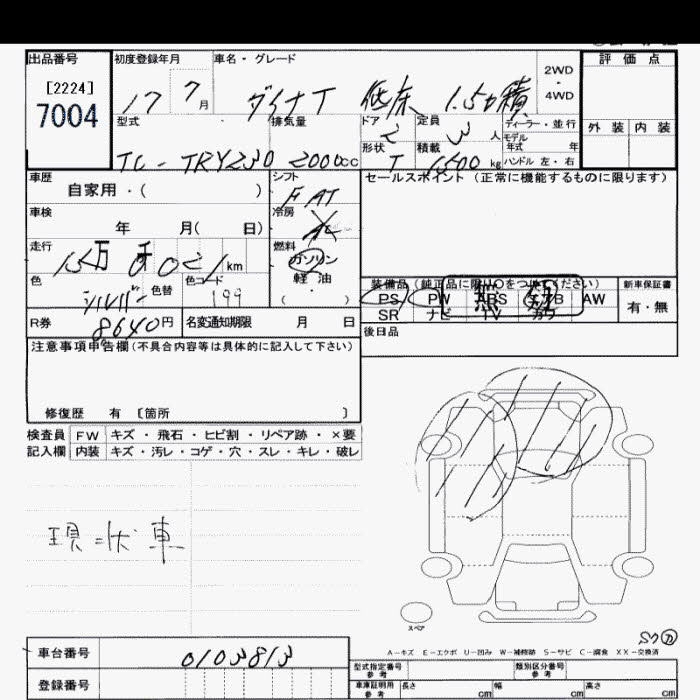 出品番号 初度登録年月 車名・グレード 評価点
[2224]
7004
17 7月 ダイナT 低床 1.5t積 2WD・4WD
型式 排気量 ドア 2 定員 3人 ディーラー・並行 外装 内装
モデル年式 年
TC-TRY230 2000cc 形状 T 積載 1500kg ハンドル 左・右
車歴 シフト セールスポイント (正常に機能するものに限ります)
自家用・( ) F AT
車検 冷房
年 月( 日)
走行 燃料
km ガソリン
色 シルバー 色替 色コード 199 軽油
・( )
装備品 (純正品に限り○をつけて下さい) 新車保証書
PS PW ABS エアB AW 有・無
SR ナビ TV カワ
R券 8640円 名変通知期限 月 日
後日品
注意事項申告欄(不具合内容等は具体的に記入して下さい)
修復歴 有 [箇所 ]
検査員 FW キズ・飛石・ヒビ割・リペア跡・×要
記入欄 内装 キズ・汚レ・コゲ・穴・スレ・キレ・破レ
現状車
スペア
A-キズ E-エクボ U-凹み W-補修跡 S-サビ C-腐食 XX-交換済
車台番号 0103813
登録番号
型式指定番号 参考 類別区分番号 参考
車庫証明用 参考 長さ cm 幅 cm 高さ cm